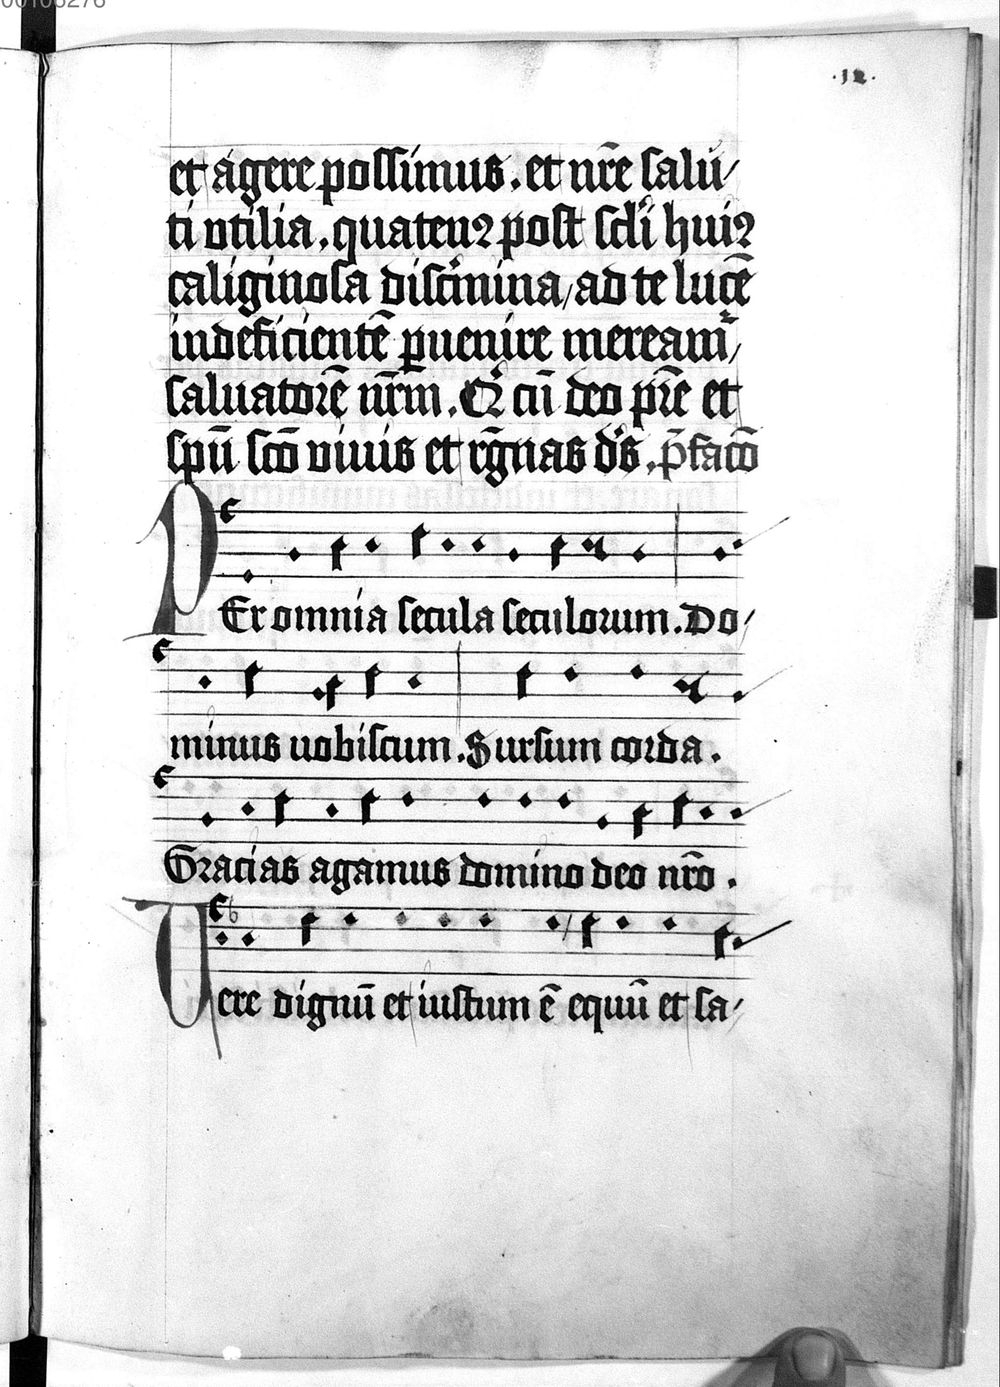 00106276
.12.
et agere possimus. et nr̄e salu/
ti vtilia. quatenꝰ post scl̓i huiꝰ
caliginosa discͥmina/ ad te lucē
indeficientē ꝑuenire mereamᷣ/
saluatorē nr̄m. Qͥ cū deo pr̄e et
spū scō viuis et rēgnas dˢs. p̄facō
PEr omnia secula seculorum. Do/
minus uobiscum. Sursum corda.
Gracias agamus domino deo nr̄o.
Uere dignū et iustum ē equū et sa/